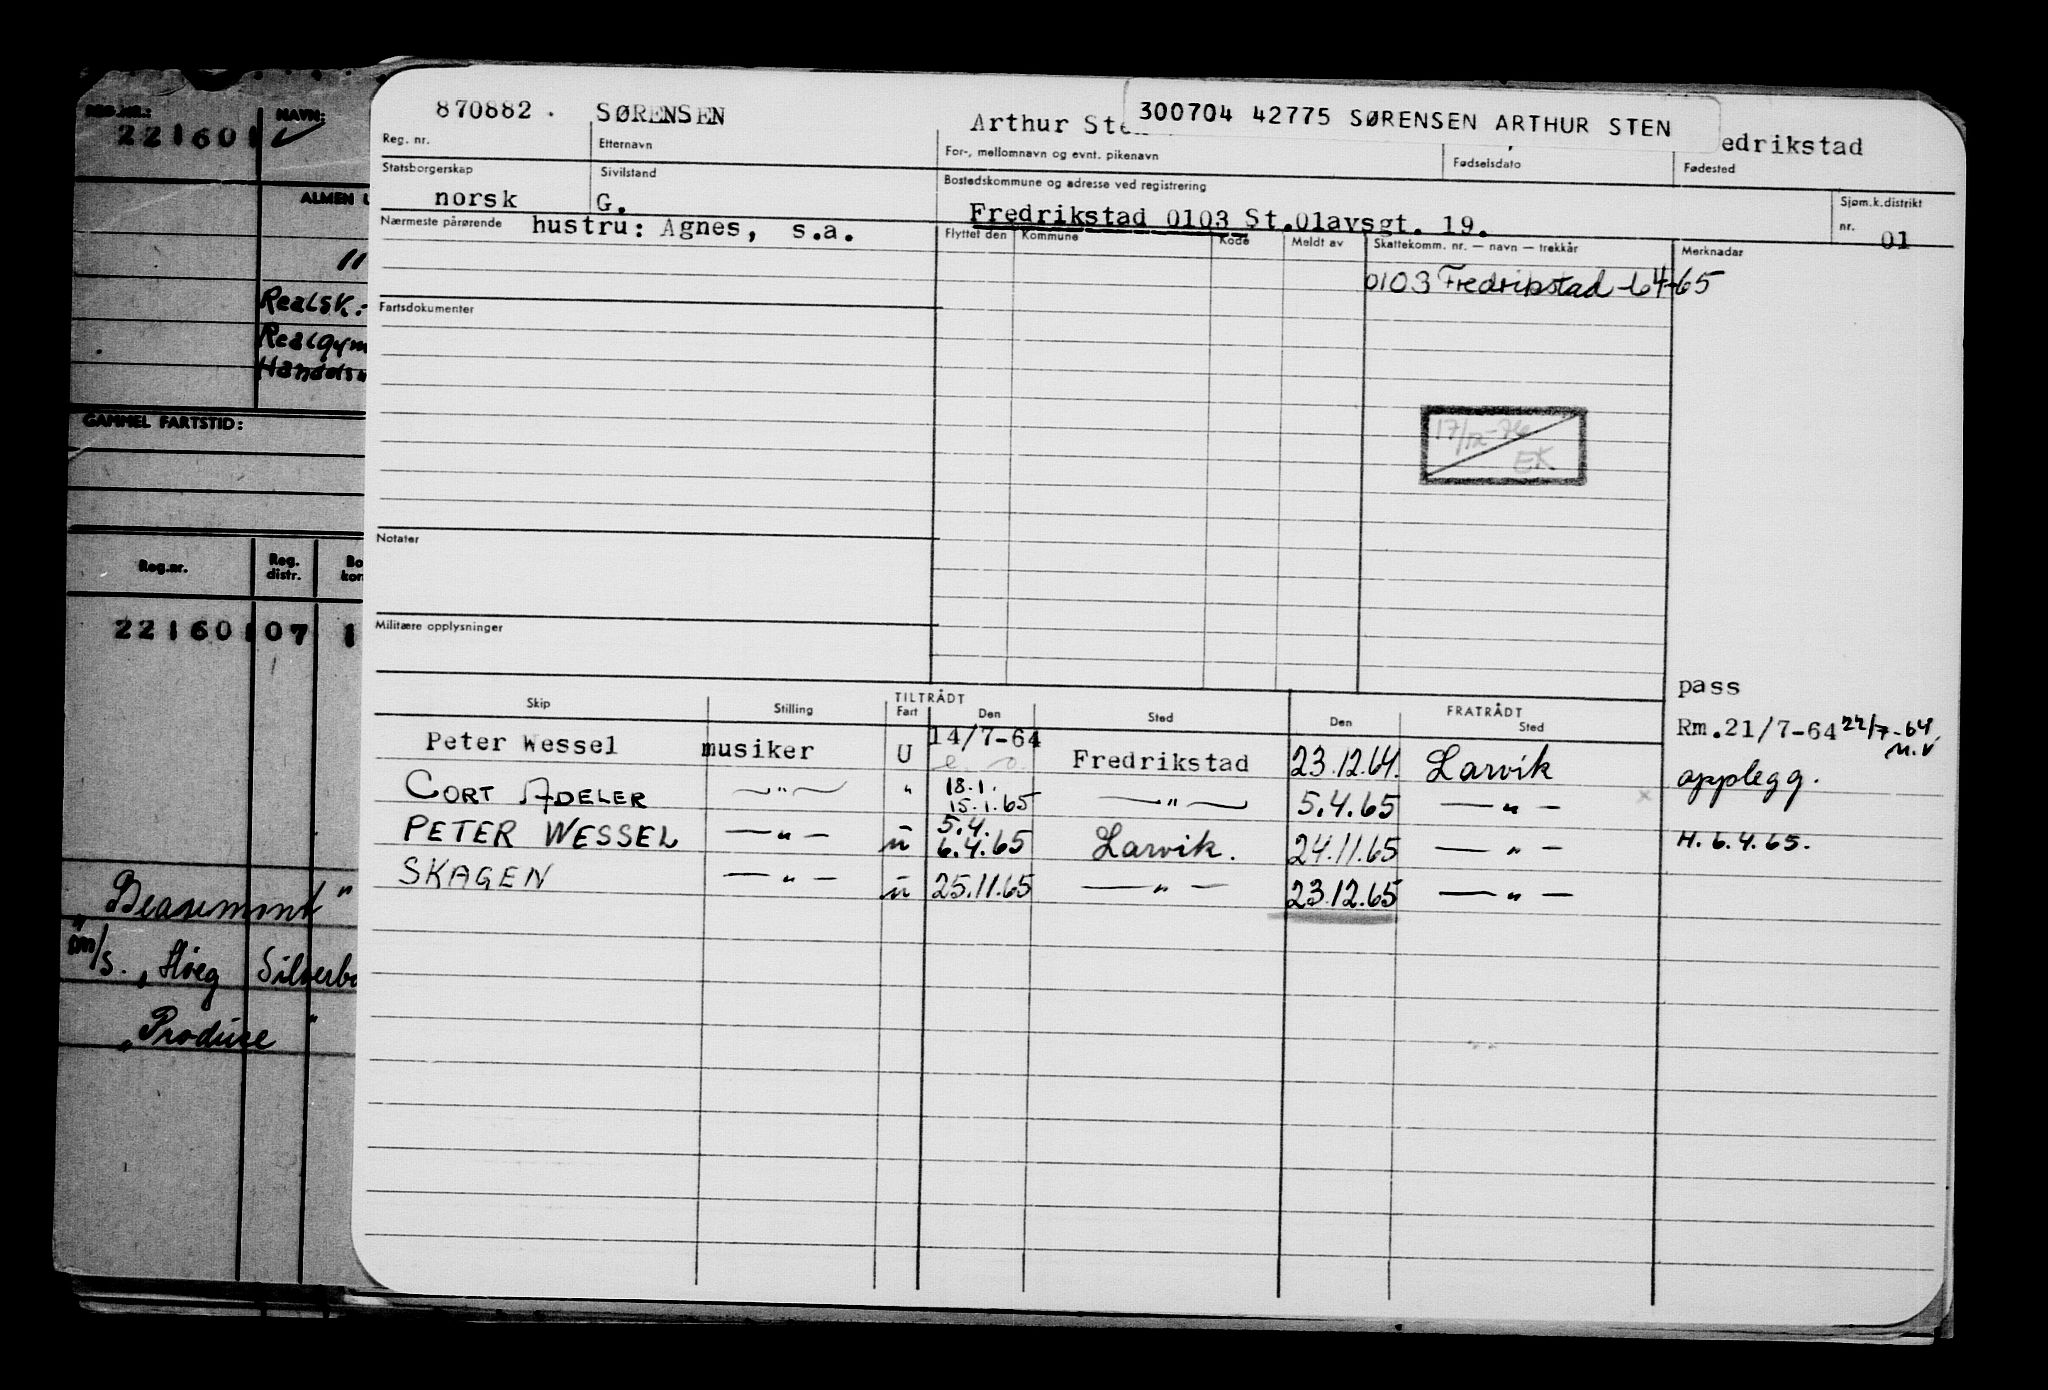 REG.NR.: NAVN:
221601
ALMEN
"
Realsk.-
Realgym
Handels
GAMMEL FARTSTID:
Reg.nr. Reg. distr. Bo kon
221601 07 1
"Beaumont"
m/s. "Høeg Silverb
"Produce"
870882. SØRENSEN Arthur Sten 300704 42775 SØRENSEN ARTHUR STEN edrikstad
Reg. nr. Etternavn For-, mellomnavn og evnt. pikenavn Fødselsdato Fødested
Statsborgerskap Sivilstand Bostedskommune og adresse ved registrering Sjøm.k.distrikt
norsk G. Fredrikstad 0103 St.Olavsgt. 19. nr. 01
Nærmeste pårørende hustru: Agnes, s.a. Flyttet den Kommune Kode Meldt av Skattekomm. nr. — navn — trekkår Merknader
0103 Fredrikstad -64-65
Fartsdokumenter
17/12-76
EK
Notater
Militære opplysninger
pass
TILTRÅDT FRATRÅDT
Skip Stilling Fart Den Sted Den Sted
Peter Wessel musiker U 14/7-64 Fredrikstad 23.12.64. Larvik Rm.21/7-64 22/7-64 M.V
opplegg.
CORT ADELER —"— " 18.1. 15.1.65 —"— 5.4.65 —"—
PETER WESSEL —"— u 5.4. 6.4.65 Larvik. 24.11.65 —"— H. 6.4.65.
SKAGEN —"— u 25.11.65 —"— 23.12.65 —"—